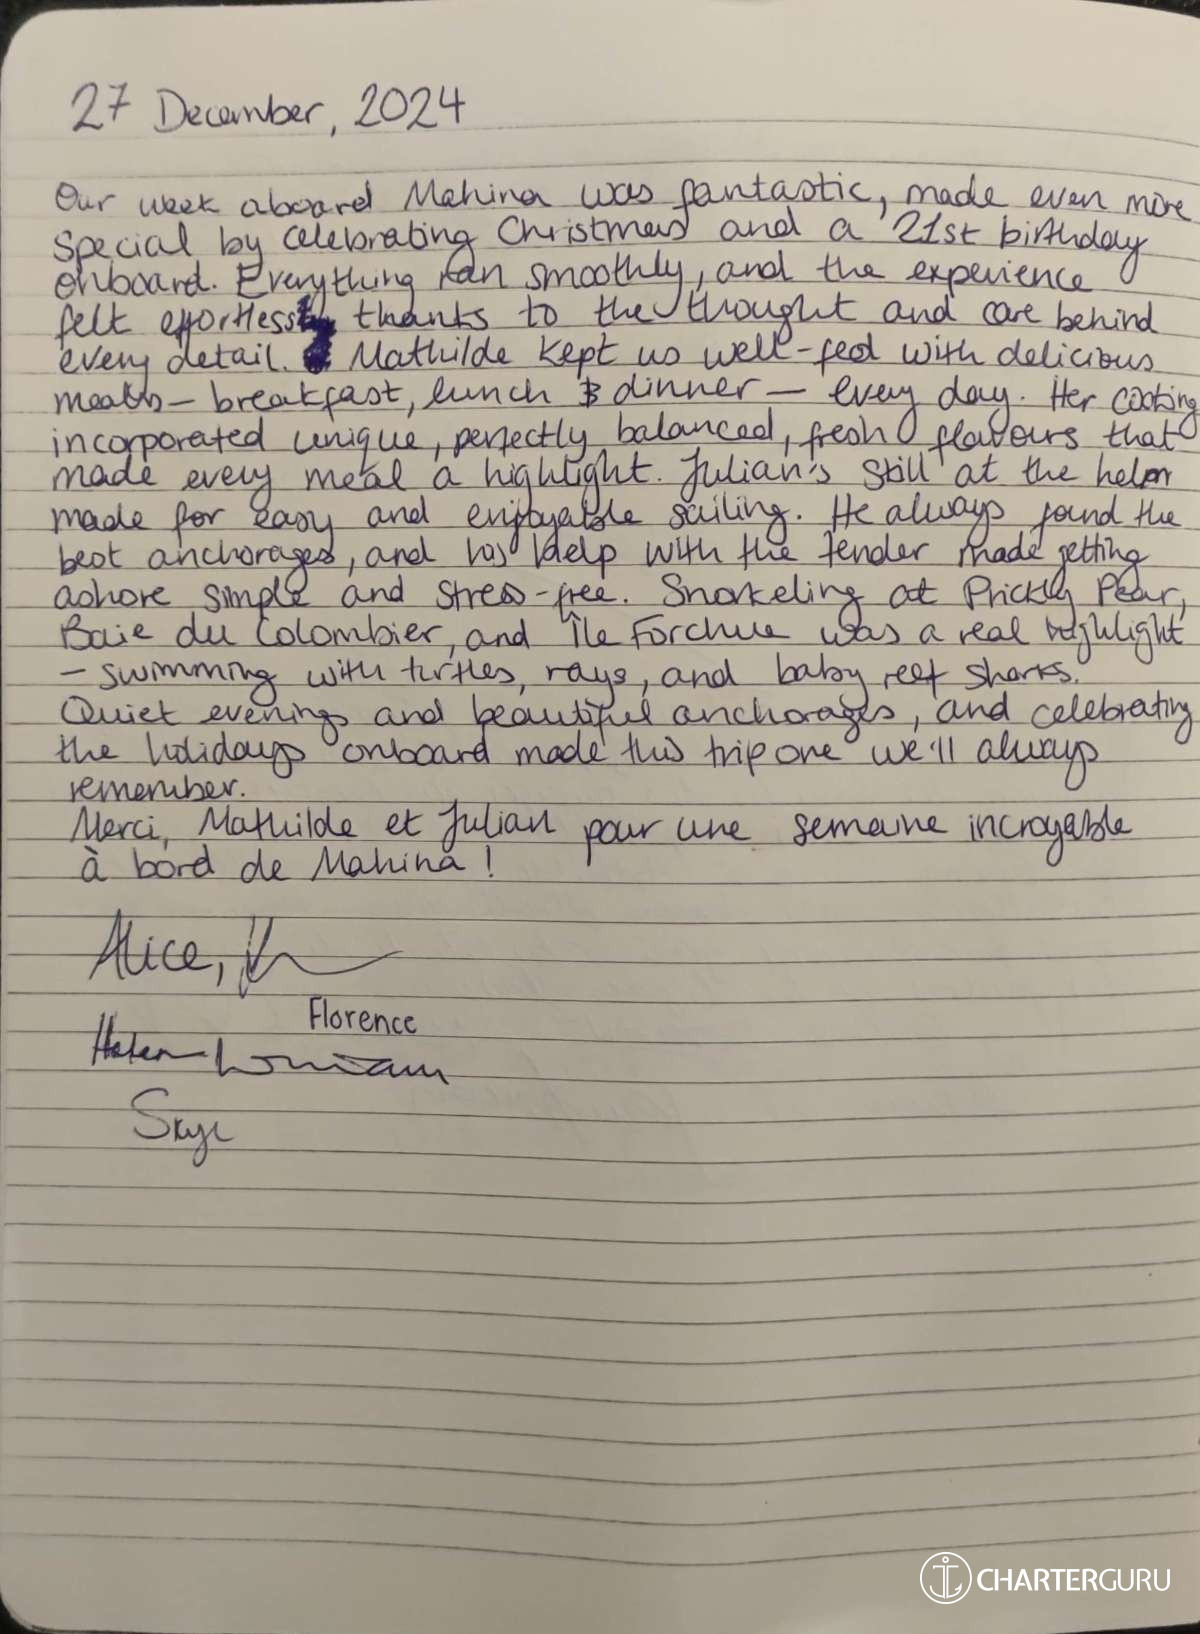 27 December, 2024
Our week aboard Mahina was fantastic, made even more
special by celebrating Christmas and a 21st birthday
onboard. Everything ran smoothly, and the experience
felt effortless thanks to the thought and care behind
every detail. Mathilde kept us well-fed with delicious
meals - breakfast, lunch & dinner - every day. Her cooking
incorporated unique, perfectly balanced, fresh flavours that
made every meal a highlight. Julian's skill at the helm
made for easy and enjoyable sailing. He always found the
best anchorages, and his help with the tender made getting
ashore simple and stress-free. Snorkeling at Prickly Pear,
Baie du Colombier, and Île Forchue was a real highlight
- swimming with turtles, rays, and baby reef sharks.
Quiet evenings and beautiful anchorages, and celebrating
the holidays onboard made this trip one we'll always
remember.
Merci, Mathilde et Julian pour une semaine incroyable
à bord de Mahina!
Alice,
Florence
Helen
Skye
CHARTERGURU